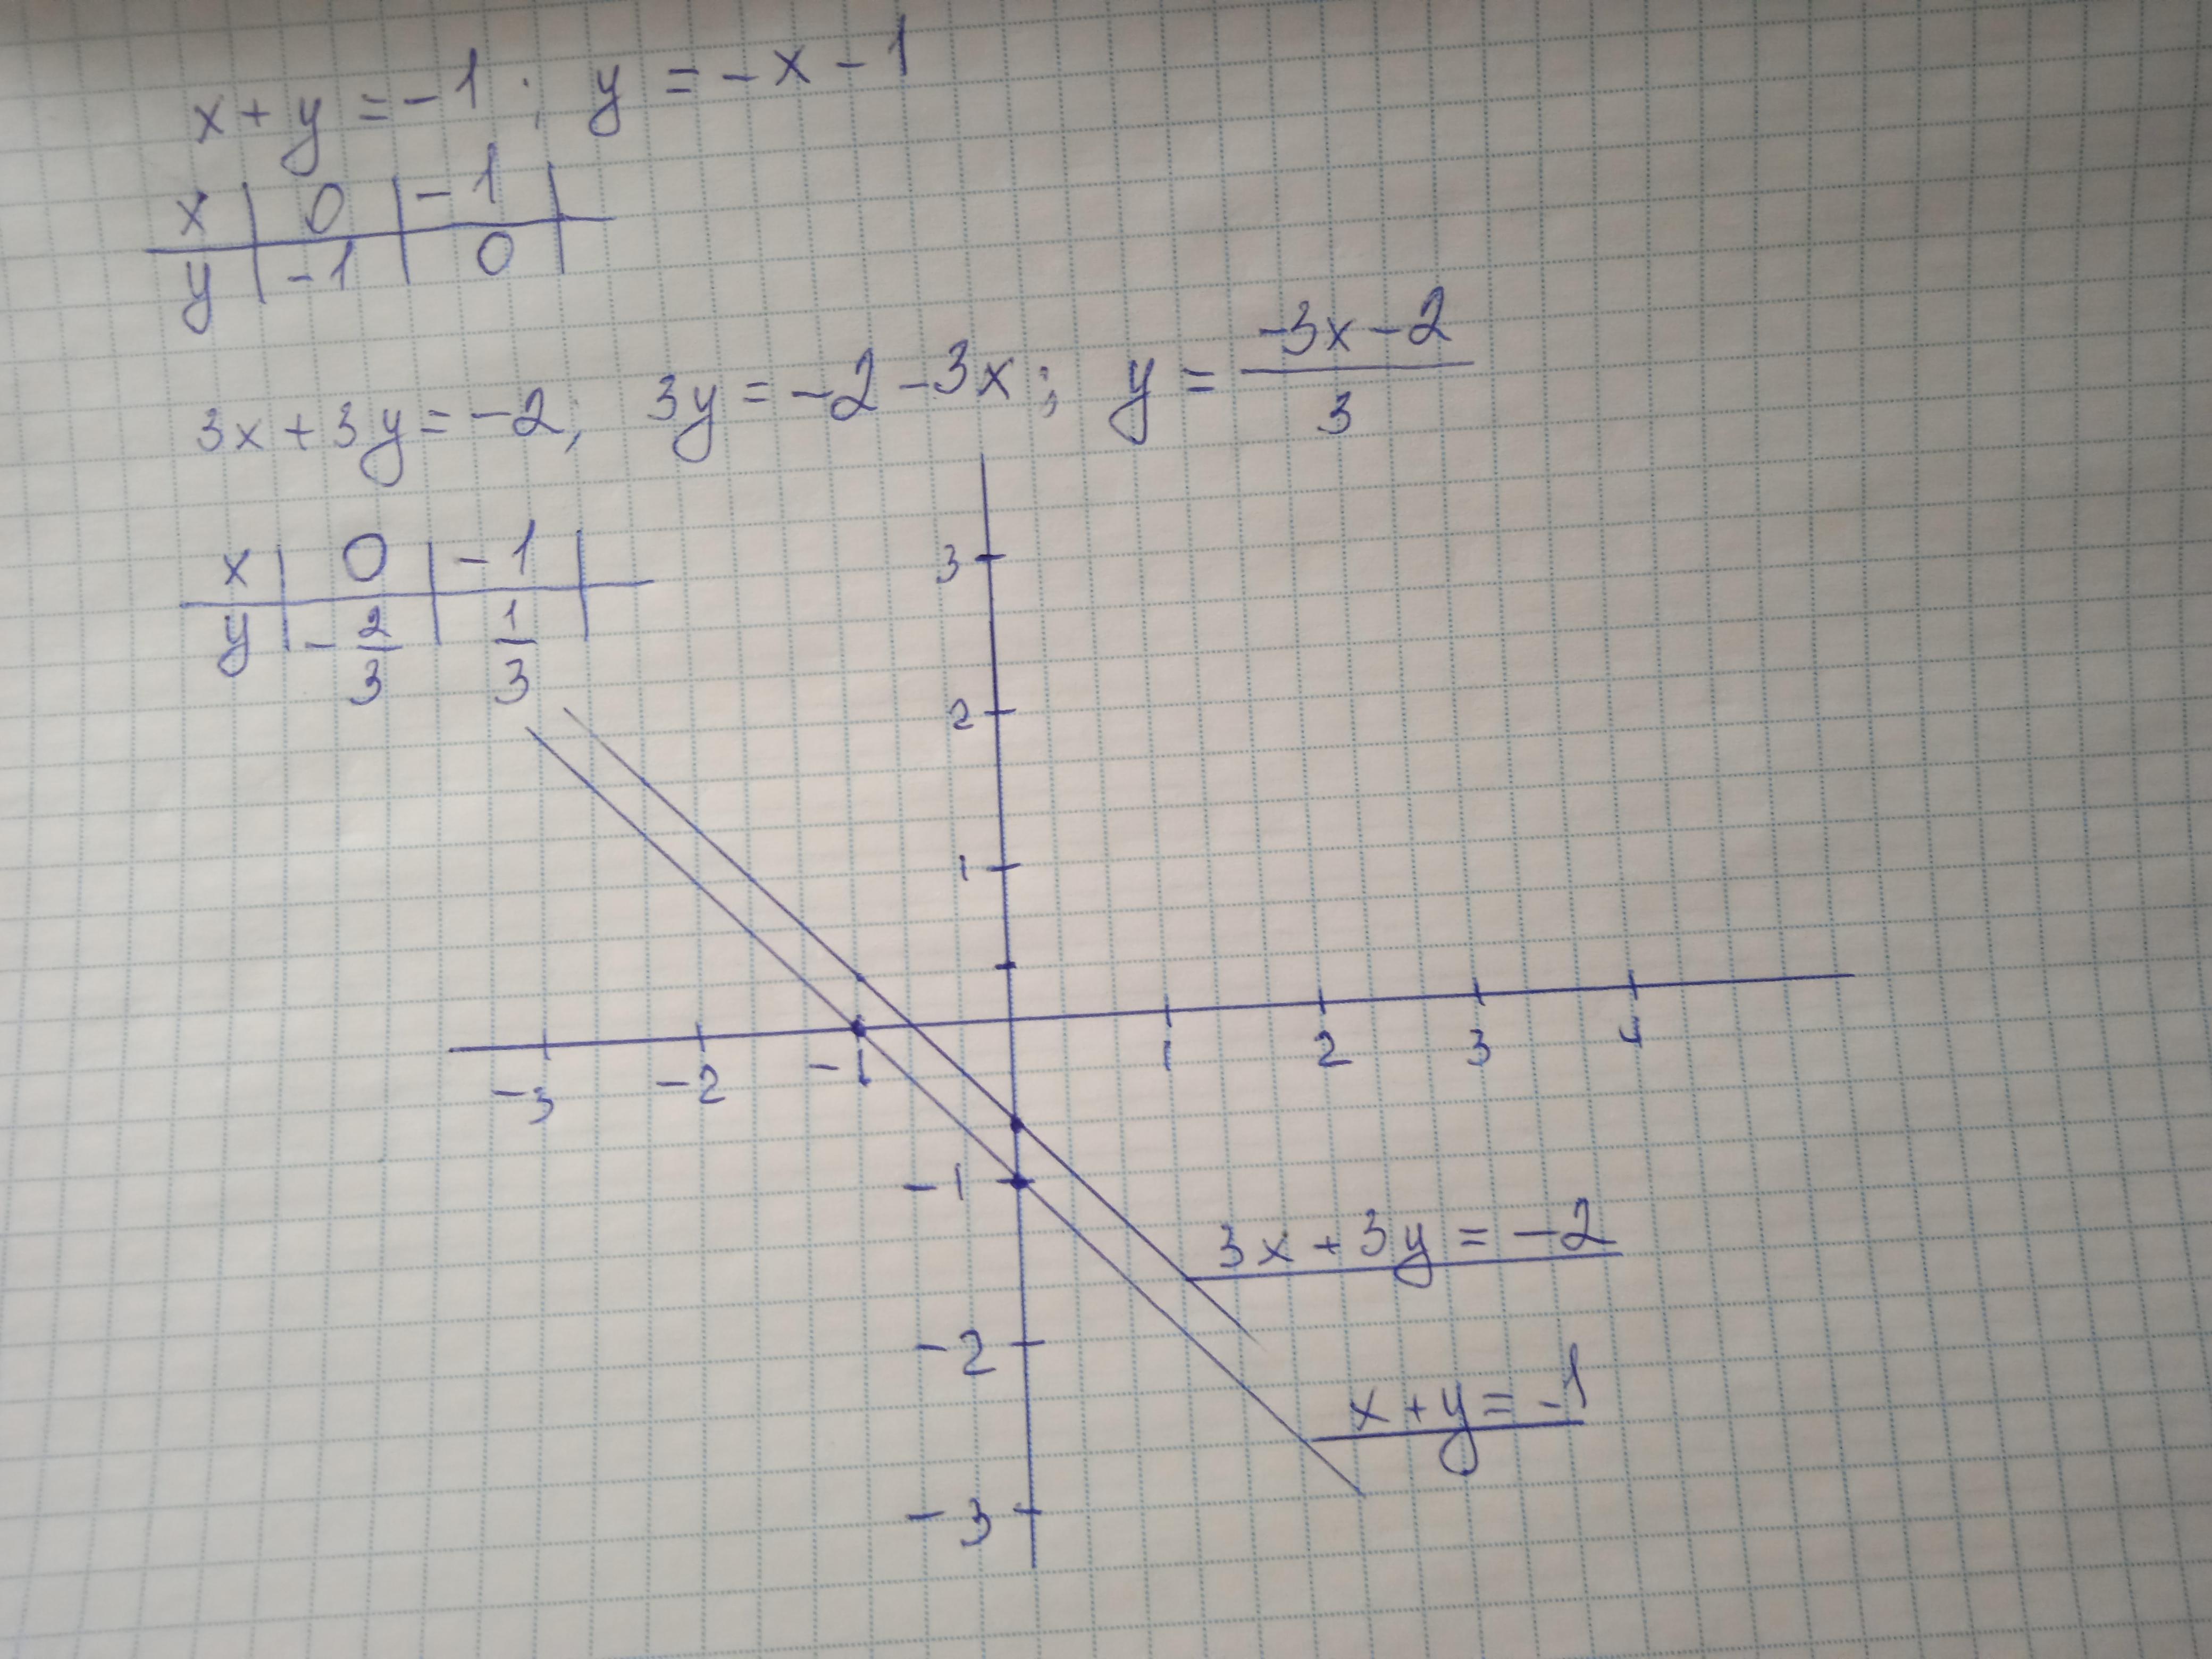 x + y = -1 ; y = -x - 1
x | 0 | -1 |
y | -1 | 0 |
3x + 3y = -2; 3y = -2 - 3x; y = (-3x - 2)/3
x | 0 | -1 |
y | -2/3 | 1/3 |
3
2
1
-3 -2 -1 1 2 3 4
-1
3x + 3y = -2
-2
x + y = -1
-3